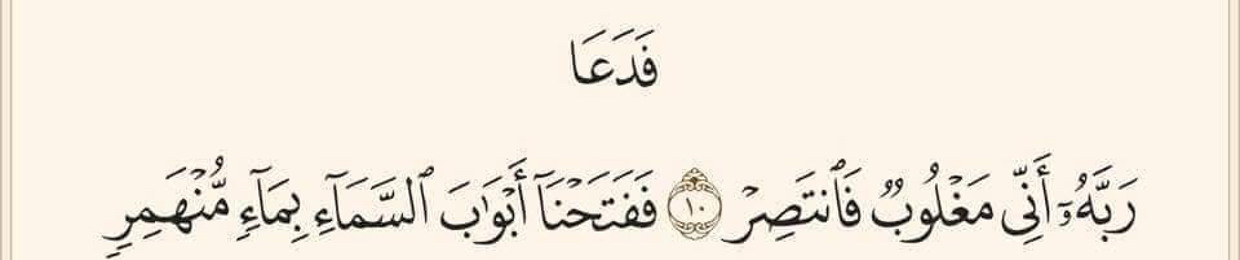 فَدَعَا
رَبَّهُۥٓ أَنِّى مَغْلُوبٌ فَٱنتَصِرْ ١٠ فَفَتَحْنَآ أَبْوَٰبَ ٱلسَّمَآءِ بِمَآءٍ مُّنْهَمِرٍ